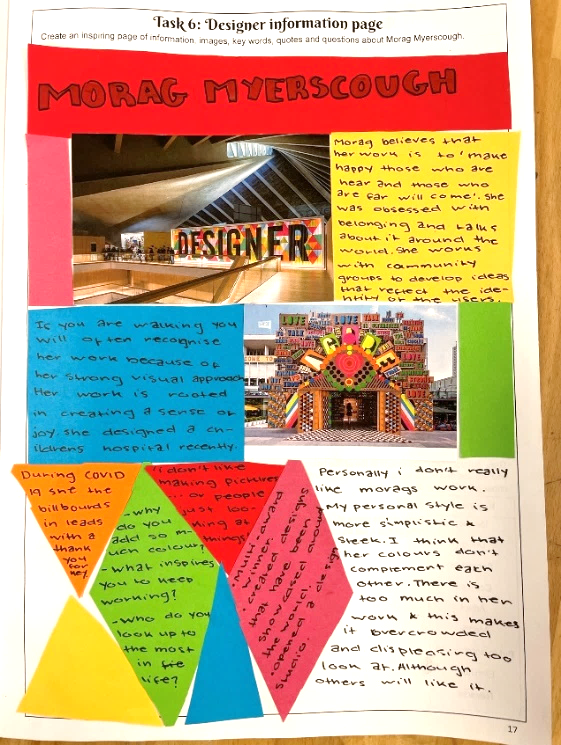 Task 6: Designer information page
Create an inspiring page of information, images, key words, quotes and questions about Morag Myerscough.
MORAG MYERSCOUGH
Morag believes that
her work is to 'make
happy those who are
hear and those who
are far will come'. She
was obsessed with
belonging and talks
about it around the
world. She works
with community
groups to develop ideas
that reflect the ide-
ntity of the users.
DESIGNER
Is you are walking you
will often recognise
her work because of
her strong visual approach
Her work is rooted
in creating a sense of
joy. she designed a ch-
ildrens hospital recently.
LOVE
LOVE
AGORA
During COVID
19 she the
billbourds
in leads
with a
thank
you
for
key
-why
do you
add so m-
uch colour?
-What inspires
you to keep
working?
-Who do you
look up to
the most
in
life?
"i don't like
making pictures
... or people
just loo-
king at
things
•multi-award
winner.
•created designs
that have been
showcased around
the world.
•opened a design
studio.
Personally i don't really
like morags work.
My personal style is
more simplistic &
sleek. I think that
her colours don't
complement each
other. There is
too much in her
work & this makes
it overcrowded
and displeasing too
look at. Although
others will like it.
17